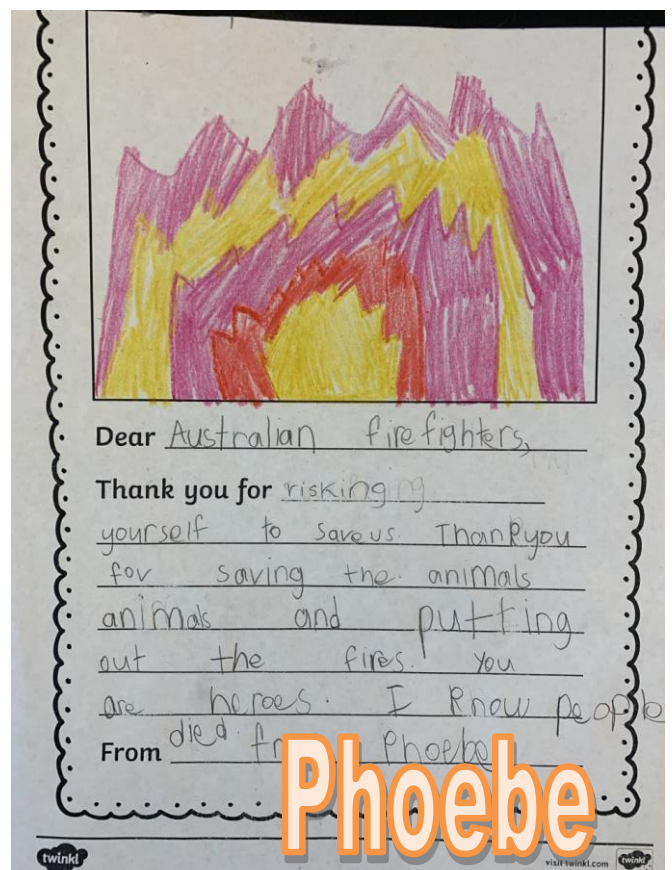 Dear Australian firefighters,
Thank you for risking
yourself to save us. Thankyou
for saving the animals
animals and putting
out the fires. You
are heroes. I know people
died. Phoebe
From
Phoebe
twinkl
visit twinkl.com
twinkl